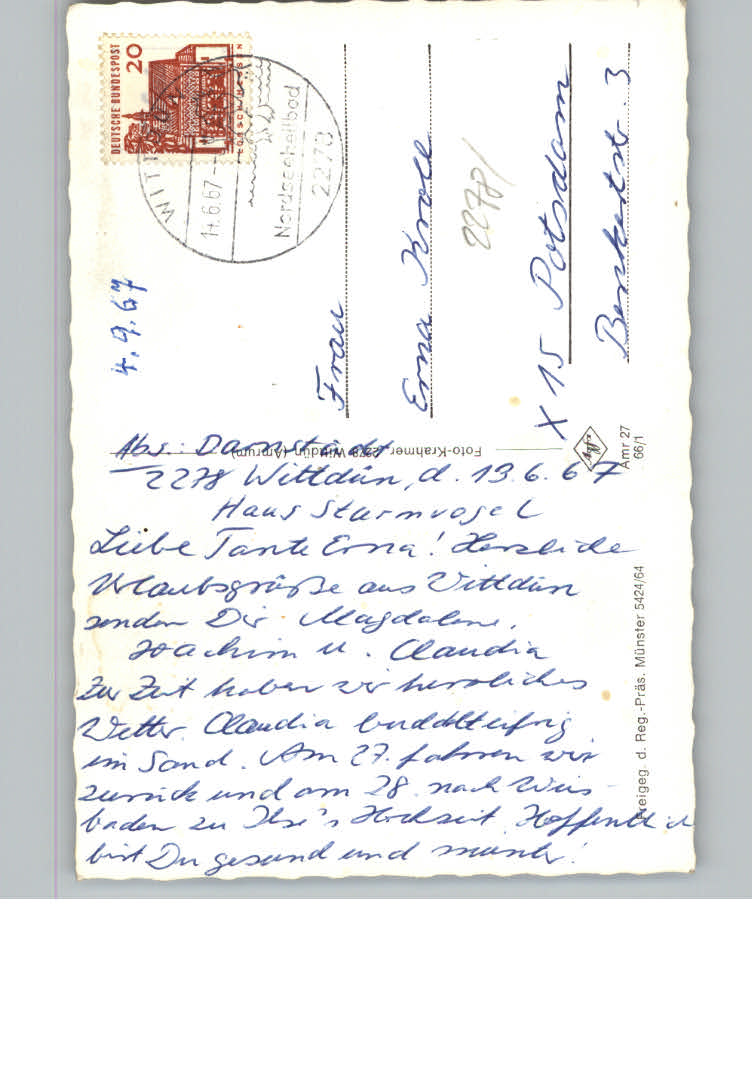 DEUTSCHE BUNDESPOST
20
LORSCH/HESSEN
14.6.67
Nordseeheilbad
2278
4.9.67
2278/
Frau
Erna Kroll
X 15 Potsdam
Benkertstr. 3
Foto-Krahmer, 2278 Wittdün (Amrum)
Agfa
Amr 27
66/1
Freigeg. d. Reg.-Präs. Münster 5424/64
Abs.: Darmstadt
2278 Wittdün, d. 13.6.67
Haus Sturmvogel
Liebe Tante Erna! Herzliche
Urlaubsgrüße aus Wittdün
senden Dir Magdalene,
Joachim u. Claudia
Zur Zeit haben wir herrliches
Wetter. Claudia buddelt eifrig
im Sand. Am 27. fahren wir
zurück und am 28. nach Wies-
baden zu Ilse's Hochzeit. Hoffentlich
bist Du gesund und munter!